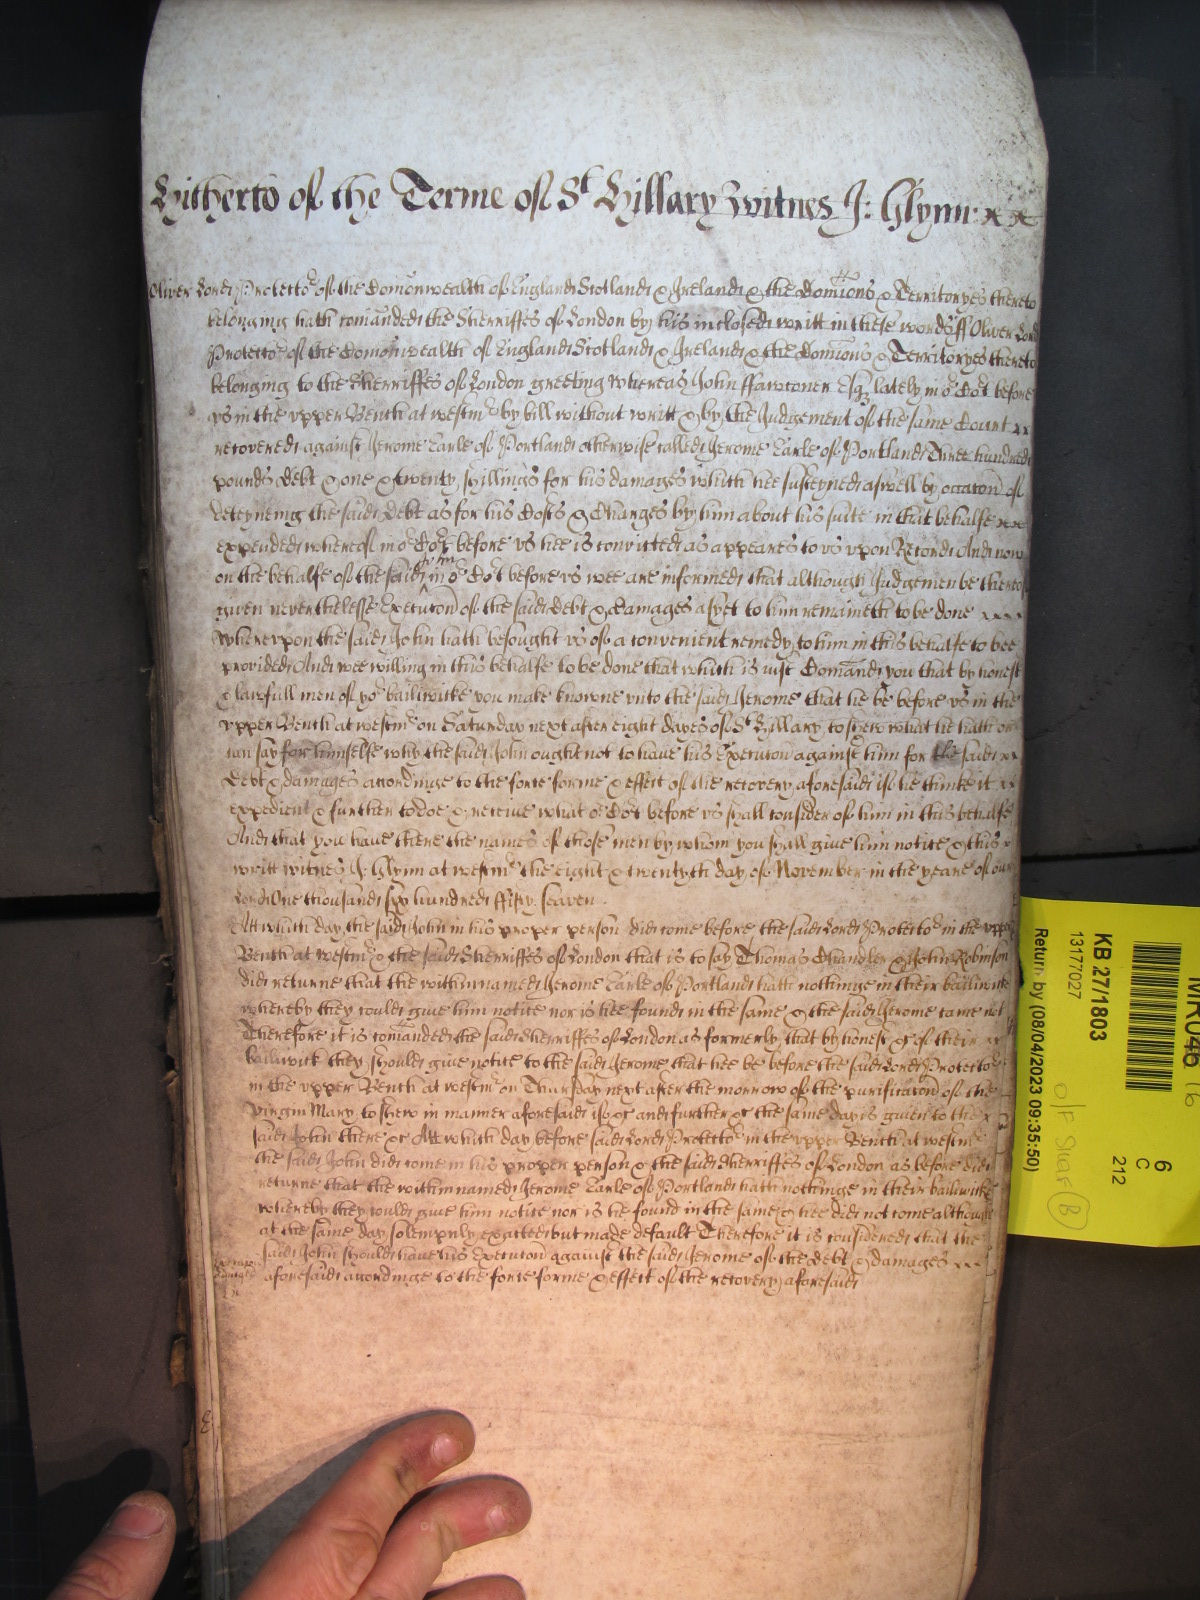 Hitherto of the Terme of St Hillary Witnes J: Glynn
Oliver Lord Protector of the Comonwealth of England Scotland & Ireland & the Domions & Territoryes thereto
belonging hath comanded the Sherriffes of London by his inclosed writt in these words ff Oliver Lord
Protector of the Comonwealth of England Scotland & Ireland & the Domions & Territoryes thereto
belonging to the Sherriffes of London greeting Whereas John ffawconer Esq lately in or Cort before
vs in the vpper Bench at westmr by bill without writt & by the Judgement of the same Court
recovered against Jerome Earle of Portland otherwise called Jerome Earle of Portland Three hundred
pounds debt & one & twenty shillings for his damages which hee susteyned aswell by occacon of
deteyneing the said debt as for his Costs & Charges by him about his suite in that behalfe
expended whereof in or Cort before vs hee is convicted as appeares to vs vpon Record And now
on the behalfe of the said John in or Cort before vs wee are informed that although Judgemen be thereof
given neverthelesse Execucon of the said debt & damages asyet to him remaineth to be done
wherevpon the said John hath besought vs of a convenient remedy to him in this behalfe to bee
provided And wee willing in this behalfe to be done that which is iust Comand you that by honest
& lawfull men of yor bailiwicke you make knowne vnto the said Jerome that he be before vs in the
vpper Bench at westmr on Saturday next after eight dayes of St Hillary to shew what he hath or
can say for himselfe why the said John ought not to have his Execucon against him for the said
debt & damages accordinge to the force forme & effect of the recovery aforesaid if he thinke it
expedient & further to doe & receive what or Cort before vs shall consider of him in this behalfe
And that you have there the names of those men by whom you shall give him notice & this
writt witnes J: Glynn at westmr the eight & twentyth day of November in the yeare of our
Lord One thousand six hundred ffifty seaven
Att which day the said John in his proper person did come before the said Lord Protector in the vpper
Bench at westmr & the said Sherriffes of London that is to say Thomas Chandler & John Robinson
did returne that the within named Jerome Earle of Portland hath nothinge in their bailiwicke
whereby they could give him notice nor is hee found in the same & the said Jerome came not
Therefore it is comanded the said Sherriffes of London as formerly that by honest &c of their
bailiwick they should give notice to the said Jerome that hee be before the said Lord Protector
in the vpper Bench at westmr on Thursday next after the morrow of the purificacon of the
virgin Mary to shew in manner aforesaid if &c and further &c the same day is given to the
said John there &c Att which day before said Lord Protector in the vpper Bench at westmr
the said John did come in his proper person & the said Sherriffes of London as before did
returne that the within named Jerome Earle of Portland hath nothinge in their bailiwicke
whereby they could give him notice nor is he found in the same & hee did not come although
at the same day solempnly exacted but made default Therefore it is considered that the
said John should have his Execucon against the said Jerome of the debt & damages
aforesaid accordinge to the force forme & effect of the recovery aforesaid
KB 27/1803
13177027
Return by (08/04/2023 09:35:50)
6
C
212
O/F Shelf B